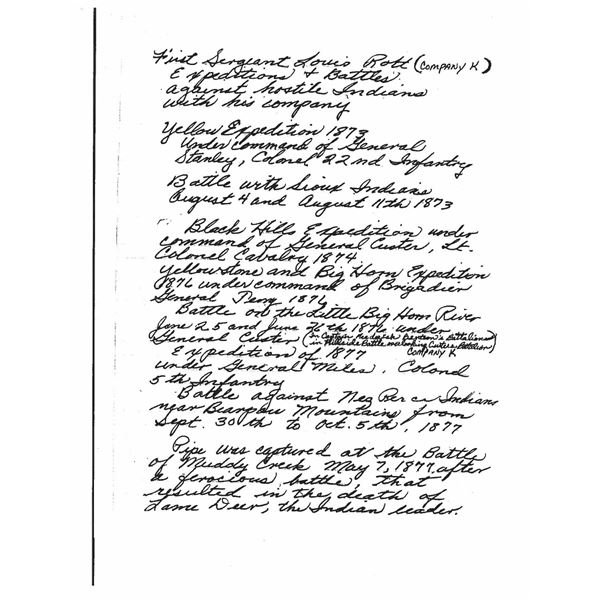 First Sergeant Louis Rott (COMPANY K)
Expeditions & Battles
against hostile Indians
with his company
Yellow Expedition 1873
Under command of General
Stanley, Colonel 22nd Infantry
Battle with Sioux Indians
August 4 and August 11th 1873
Black Hills Expedition under
command of General Custer, Lt.
Colonel Cavalry 1874
Yellowstone and Big Horn Expedition
1876 under command of Brigadier
General Terry 1876
Battle on the Little Big Horn River
June 25 and June 26th 1876 under
General Custer (In Captain Benteen's Battalion
in Hillside Battle, Custer's Battalion)
COMPANY K
Expedition of 1877
under General Miles, Colonel
5th Infantry
Battle against Nez Perce Indians
near Bearpaw Mountains from
Sept. 30th to Oct. 5th, 1877
Pipe was captured at the Battle
of Muddy Creek May 7, 1877, after
a ferocious battle, that
resulted in the death of
Lame Deer, the Indian leader.